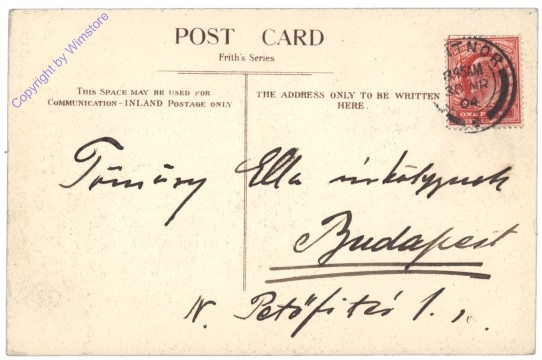 Copyright by Wimstore
POST CARD
Frith's Series
THIS SPACE MAY BE USED FOR
COMMUNICATION - INLAND POSTAGE ONLY
THE ADDRESS ONLY TO BE WRITTEN
HERE.
TNOR
845AM
30 MR
04
ONE P
Ella úrhölgynek
Budapest
IV. Petőfi tér 1.